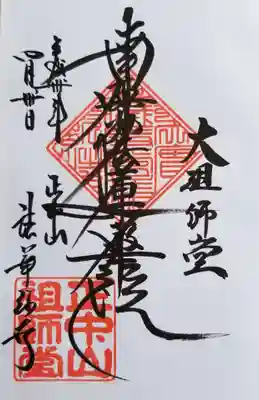 大祖師堂
南無妙法蓮華経
平成
四月卅日
正中山
法華経寺
正中山
祖師堂